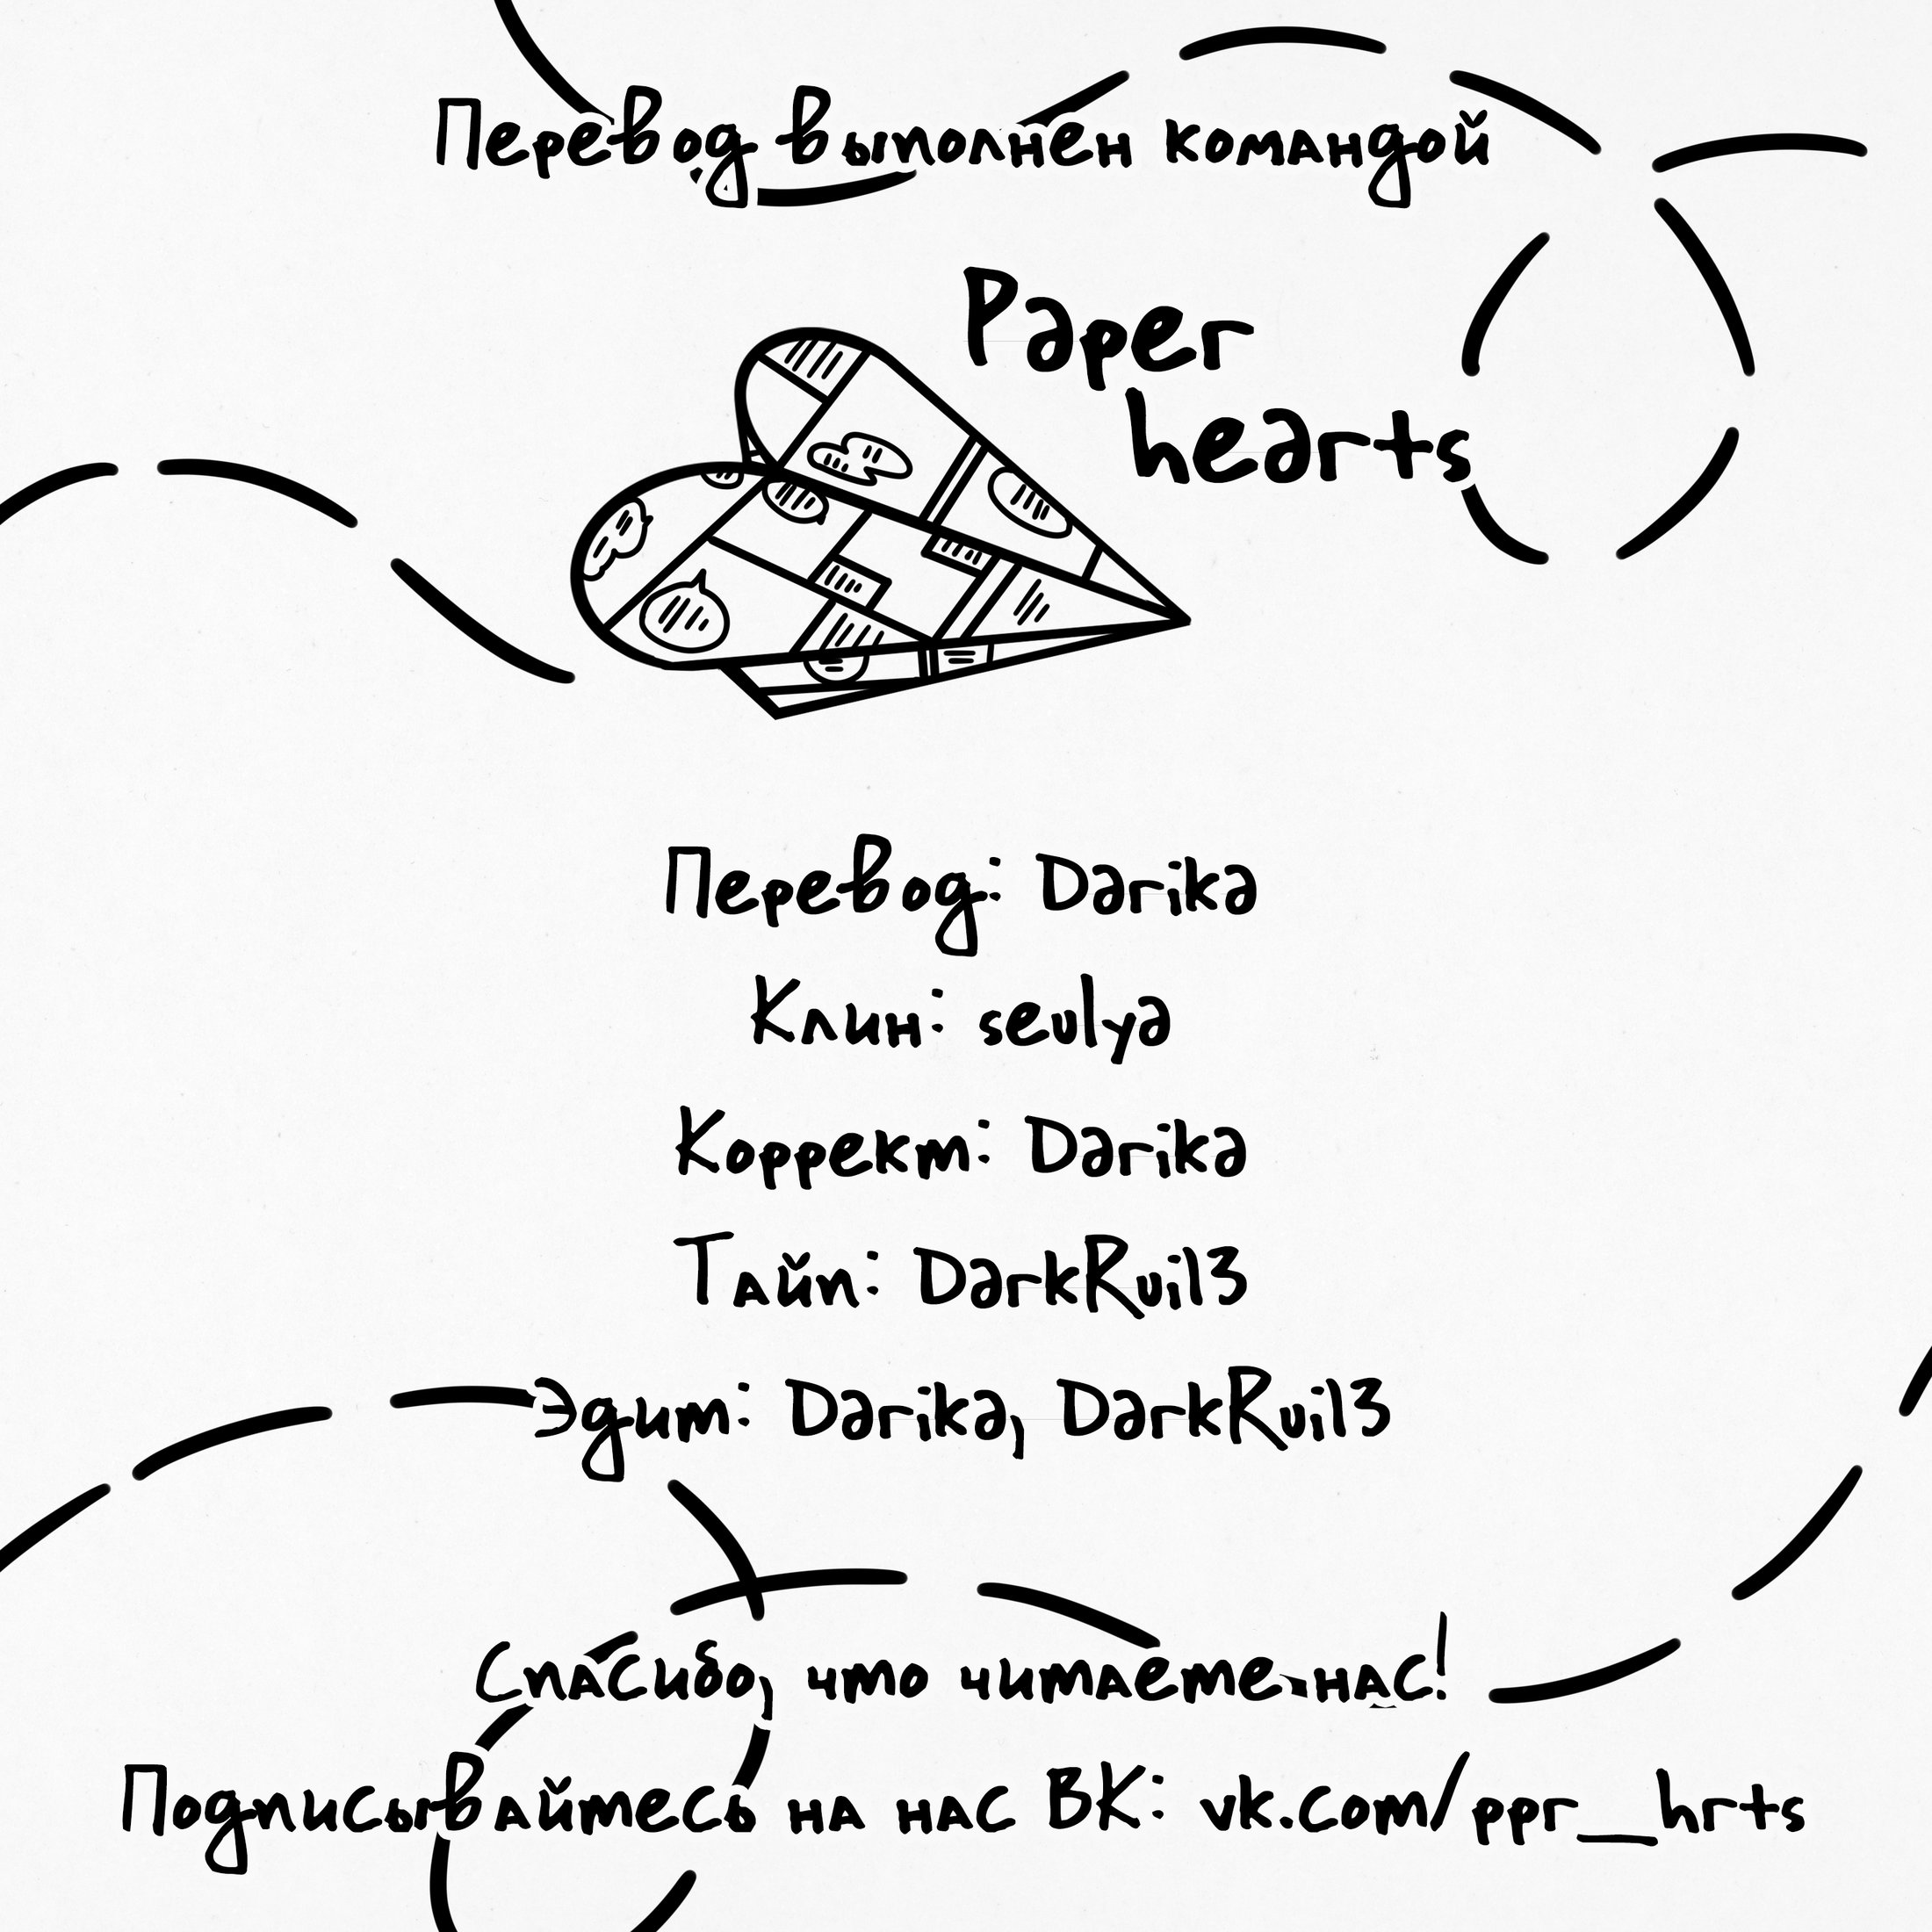 Перевод выполнен командой
Paper
hearts
Перевод: Darika
Клин: seulya
Коррект: Darika
Тайп: DarkRuil3
Эдит: Darika, DarkRuil3
Спасибо, что читаете нас!
Подписывайтесь на нас ВК: vk.com/ppr__hrts